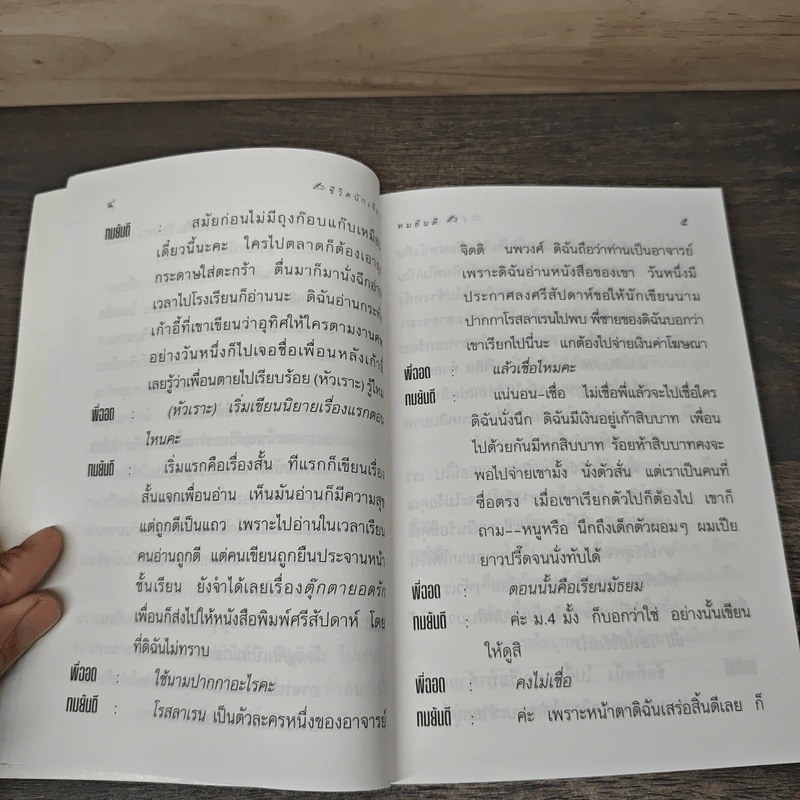 ๔
ชีวิตนักเขียน
ทมยันตี : สมัยก่อนไม่มีถุงก๊อบแก๊บเหมือน
เดี๋ยวนี้นะคะ ใครไปตลาดก็ต้องเอาถุง
กระดาษใส่ตะกร้า ตื่นมาก็มานั่งฉีกอ่าน
เวลาไปโรงเรียนก็อ่านนะ ดิฉันอ่านกระทั่ง
เก้าอี้ที่เขาเขียนว่าอุทิศให้ใครตามงานศพ
อย่างวันหนึ่งก็ไปเจอชื่อเพื่อนหลังเก้าอี้
เลยรู้ว่าเพื่อนตายไปเรียบร้อย (หัวเราะ) รู้ไหม
พี่ออด : (หัวเราะ) เริ่มเขียนนิยายเรื่องแรกตอน
ไหนคะ
ทมยันตี : เริ่มแรกคือเรื่องสั้น ทีแรกก็เขียนเรื่อง
สั้นแจกเพื่อนอ่าน เห็นมันอ่านก็มีความสุข
แต่ถูกตีเป็นแถว เพราะไปอ่านในเวลาเรียน
คนอ่านถูกตี แต่คนเขียนถูกยืนประจานหน้า
ชั้นเรียน ยังจำได้เลยเรื่องตุ๊กตายอดรัก
เพื่อนก็ส่งไปให้หนังสือพิมพ์ศรีสัปดาห์ โดย
ที่ดิฉันไม่ทราบ
พี่ออด : ใช้นามปากกาอะไรคะ
ทมยันตี : โรสลาเรน เป็นตัวละครหนึ่งของอาจารย์
ทมยันตี
๕
จิตติ นพวงศ์ ดิฉันถือว่าท่านเป็นอาจารย์
เพราะดิฉันอ่านหนังสือของเขา วันหนึ่งมี
ประกาศลงศรีสัปดาห์ขอให้นักเขียนนาม
ปากกาโรสลาเรนไปพบ พี่ชายของดิฉันบอกว่า
เขาเรียกไปนี่นะ แกต้องไปจ่ายเงินค่าโฆษณา
พี่ออด : แล้วเชื่อไหมคะ
ทมยันตี : แน่นอน-เชื่อ ไม่เชื่อพี่แล้วจะไปเชื่อใคร
ดิฉันนั่งนึก ดิฉันมีเงินอยู่เก้าสิบบาท เพื่อน
ไปด้วยกันมีหกสิบบาท ร้อยห้าสิบบาทคงจะ
พอไปจ่ายเขามั้ง นั่งตัวสั่น แต่เราเป็นคนที่
ซื่อตรง เมื่อเขาเรียกตัวไปก็ต้องไป เขาก็
ถาม--หนูหรือ นึกถึงเด็กตัวผอมๆ ผมเปีย
ยาวปรี๊ดจนนั่งทับได้
พี่ออด : ตอนนั้นคือเรียนมัธยม
ทมยันตี : ค่ะ ม.4 มั้ง ก็บอกว่าใช่ อย่างนั้นเขียน
ให้ดูสิ
พี่ออด : คงไม่เชื่อ
ทมยันตี : ค่ะ เพราะหน้าตาดิฉันเสร่อสิ้นดีเลย ก็